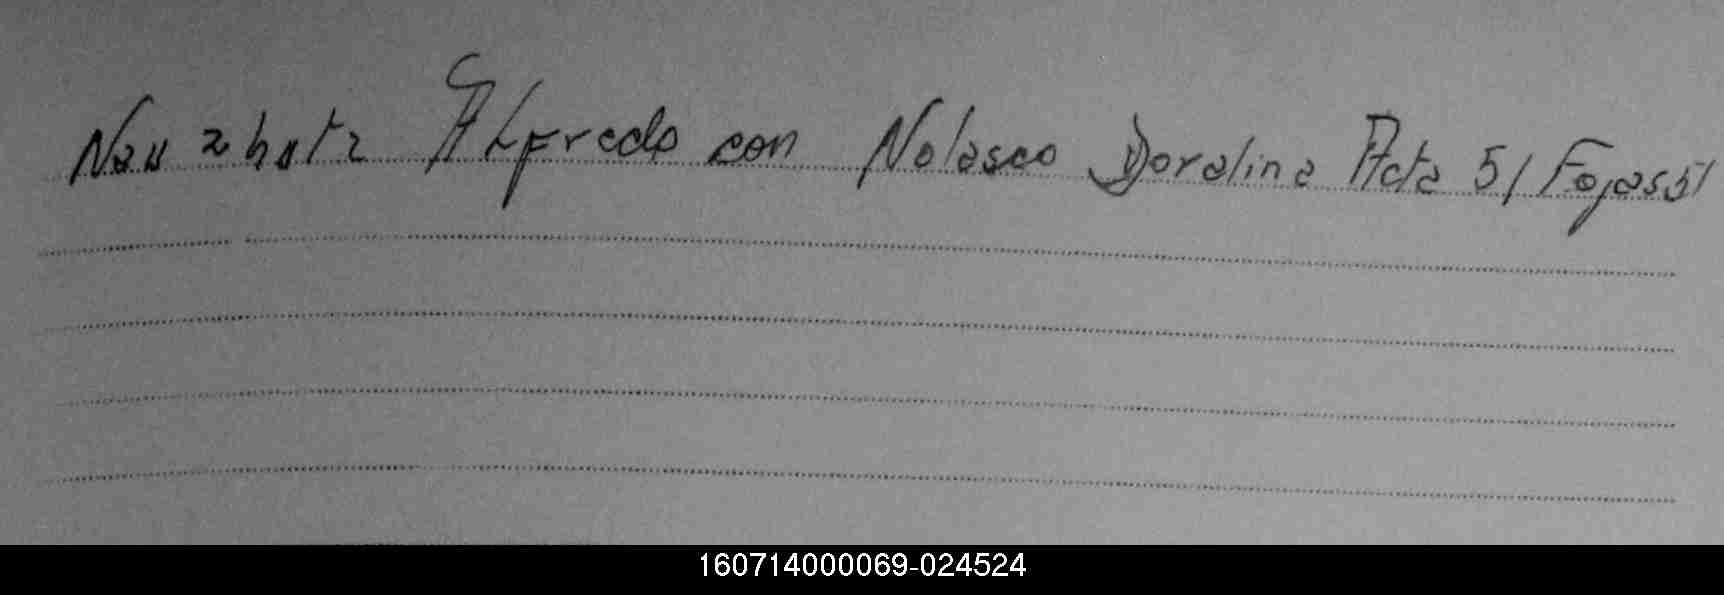 Alfredo con Nolasco Doralina Acta 51 Fojas 51
160714000069-024524